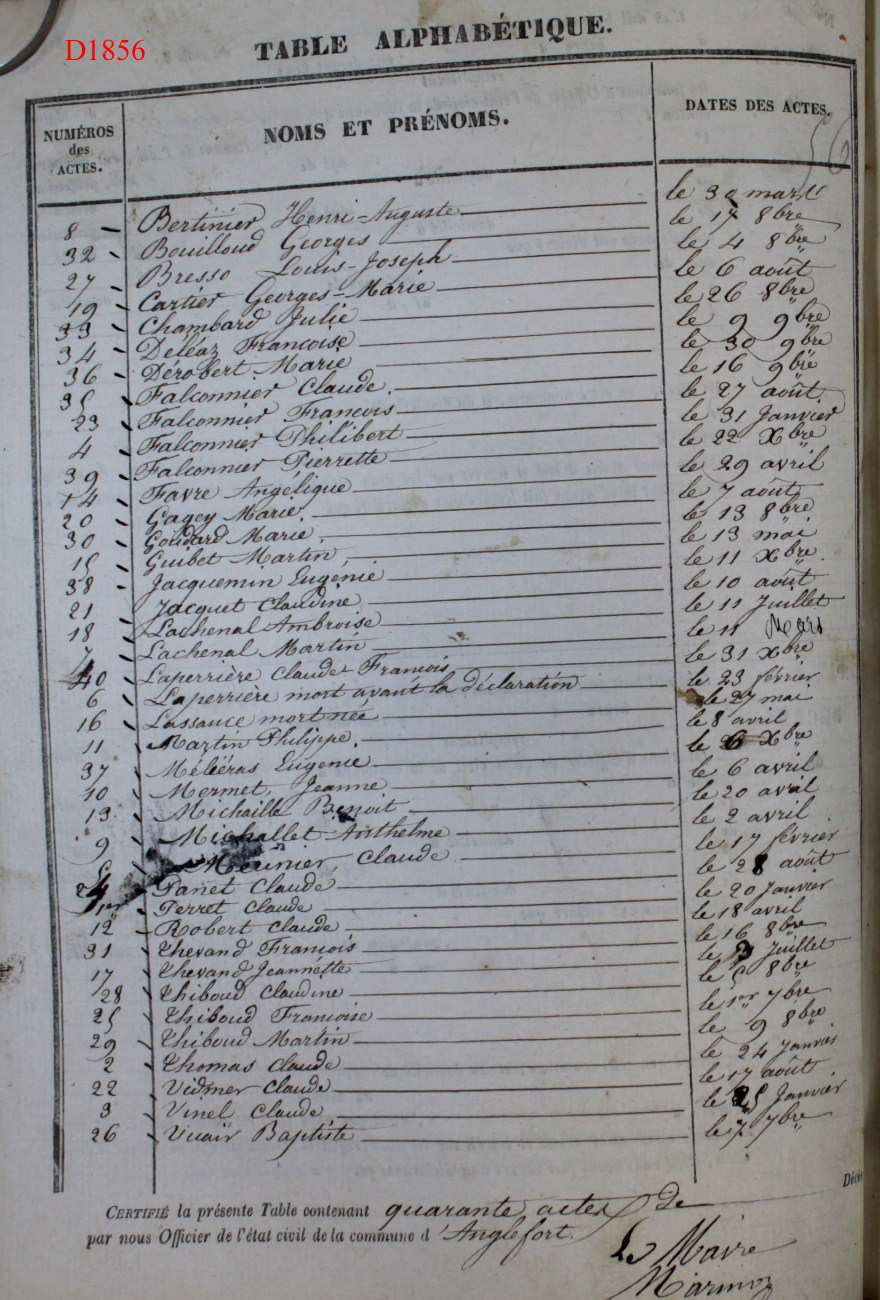 D1856
TABLE ALPHABÉTIQUE.
NUMÉROS des ACTES. NOMS ET PRÉNOMS. DATES DES ACTES.
56
8 Bertinier Henri-Auguste le 30 mars
32 Bouilloud Georges le 17 8bre
27 Bresso Louis-Joseph le 4 8bre
19 Cartier Georges-Marie le 6 août
33 Chambard Julie le 26 8bre
34 Déléaz Françoise le 9 9bre
36 Dérobert Marie le 30 9bre
35 Falconnier Claude. le 16 9bre
23 Falconnier François le 27 août.
4 Falconnier Philibert le 31 Janvier
39 Falconnier Pierrette le 22 Xbre
14 Favre Angelique le 29 avril
20 Gagey Marie. le 7 août
30 Goudard Marie. le 13 8bre
15 Guibet Martin, le 13 mai
38 Jacquemin Eugénie le 11 Xbre
21 Jacquet Claudine le 10 août
18 Lachenal Ambroise le 11 Juillet
7 Lachenal Martin le 11 Mars
40 Laperrière Claude François le 31 Xbre
6 Laperrière mort avant la déclaration le 23 février
16 Lassauce mort née le 27 mai
11 Martin Philippe. le 8 avril
37 Méliéras Eugenie le 6 Xbre
10 Mermet, Jeanne le 6 avril
13 Michaille Benoit le 20 avril
9 Michallet Anthelme le 2 avril
5 Meunier, Claude le 17 février
24 Panet Claude le 28 août
1er Perret Claude le 20 Janvier
12 Robert Claude le 18 avril
31 Thevand François le 16 8bre
17 Thevand Jeannette le Juillet
28 Thiboud Claudine le 5 8bre
25 Thiboud Françoise le 1er 7bre
29 Thiboud Martin le 9 8bre
2 Thomas Claude le 24 Janvier
22 Vidmer Claude le 17 août
3 Vinel Claude le 25 Janvier
26 Vuaïr Baptiste le 7 7bre
Décès
CERTIFIÉ la présente Table contenant quarante actes de
par nous Officier de l'état civil de la commune d'Anglefort.
Le Maire